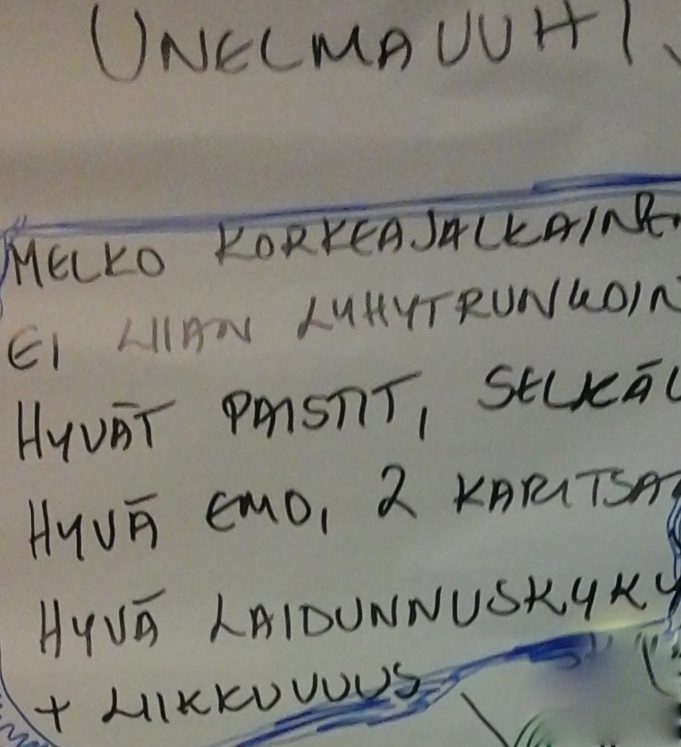 UNELMAUUHI
MELKO KORKEAJALKAINE
EI LIIAN LYHYTRUNKOIN
HYVÄT PAISTIT, SELKÄL
HYVÄ EMO, 2 KARITSAT
HYVÄ LAIDUNNUSKYKY
+ LIIKKUVUUS